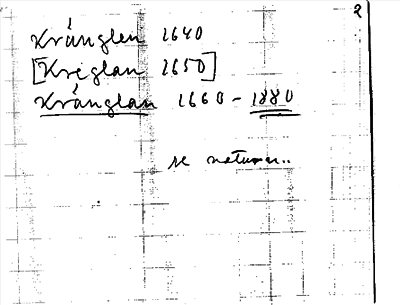 2
Krånglen 1640
[Kreglan 1650]
Krånglan 1660 - 1880
se naturn..